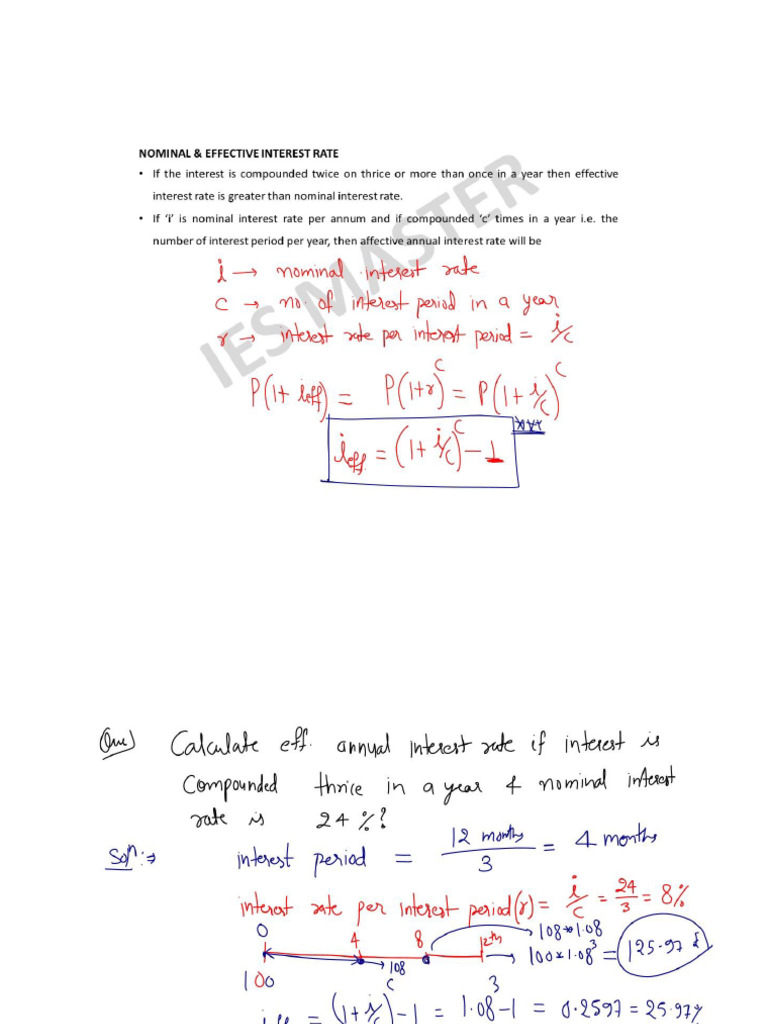 NOMINAL & EFFECTIVE INTEREST RATE
• If the interest is compounded twice on thrice or more than once in a year then effective
interest rate is greater than nominal interest rate.
• If ‘i’ is nominal interest rate per annum and if compounded ‘c’ times in a year i.e. the
number of interest period per year, then affective annual interest rate will be
IES MASTER
i → nominal interest rate
c → no. of interest period in a year
r → interest rate per interest period = i/c
P(1+ ieff) = P(1+r)^C = P(1+ i/c)^C
ieff = (1+ i/c)^C - 1 ***
Que) Calculate eff. annual interest rate if interest is
Compounded thrice in a year & nominal interest
rate is 24%?
Soln:⇒ interest period = 12 months/3 = 4 months
interest rate per interest period(r) = i/c = 24/3 = 8%
0 4 8 12th → 108*1.08
→ 108 → 100×1.08^3 = 125.97
100
ieff = (1+ i/c)^C - 1 = 1.08^3 - 1 = 0.2597 = 25.97%